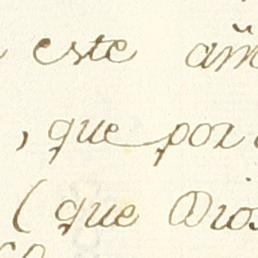 este
, que por
(que Dios